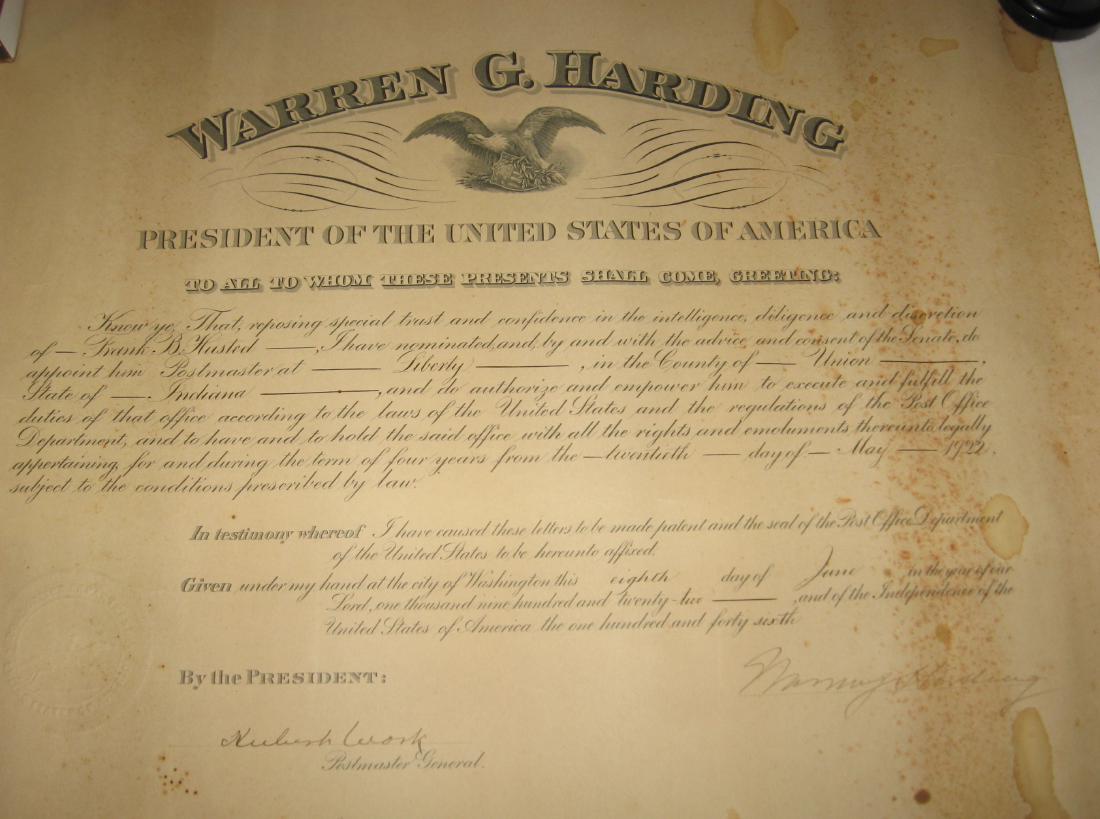 WARREN G. HARDING
PRESIDENT OF THE UNITED STATES OF AMERICA
TO ALL TO WHOM THESE PRESENTS SHALL COME, GREETING:
Know ye, That, reposing special trust and confidence in the intelligence, diligence and discretion
of — Frank B. Husted —, I have nominated, and, by and with the advice and consent of the Senate, do
appoint him Postmaster at — Liberty —, in the County of — Union —,
State of — Indiana —, and do authorize and empower him to execute and fulfill the
duties of that office according to the laws of the United States and the regulations of the Post Office
Department, and to have and to hold the said office with all the rights and emoluments thereunto legally
appertaining, for and during the term of four years from the — twentieth — day of — May — 1922.
subject to the conditions prescribed by law.
In testimony whereof I have caused these letters to be made patent and the seal of the Post Office Department
of the United States to be hereunto affixed.
Given under my hand at the city of Washington this eighth day of June in the year of our
Lord, one thousand nine hundred and twenty-two —, and of the Independence of the
United States of America the one hundred and forty sixth
By the PRESIDENT:
Warren G Harding
Hubert Work
Postmaster General.